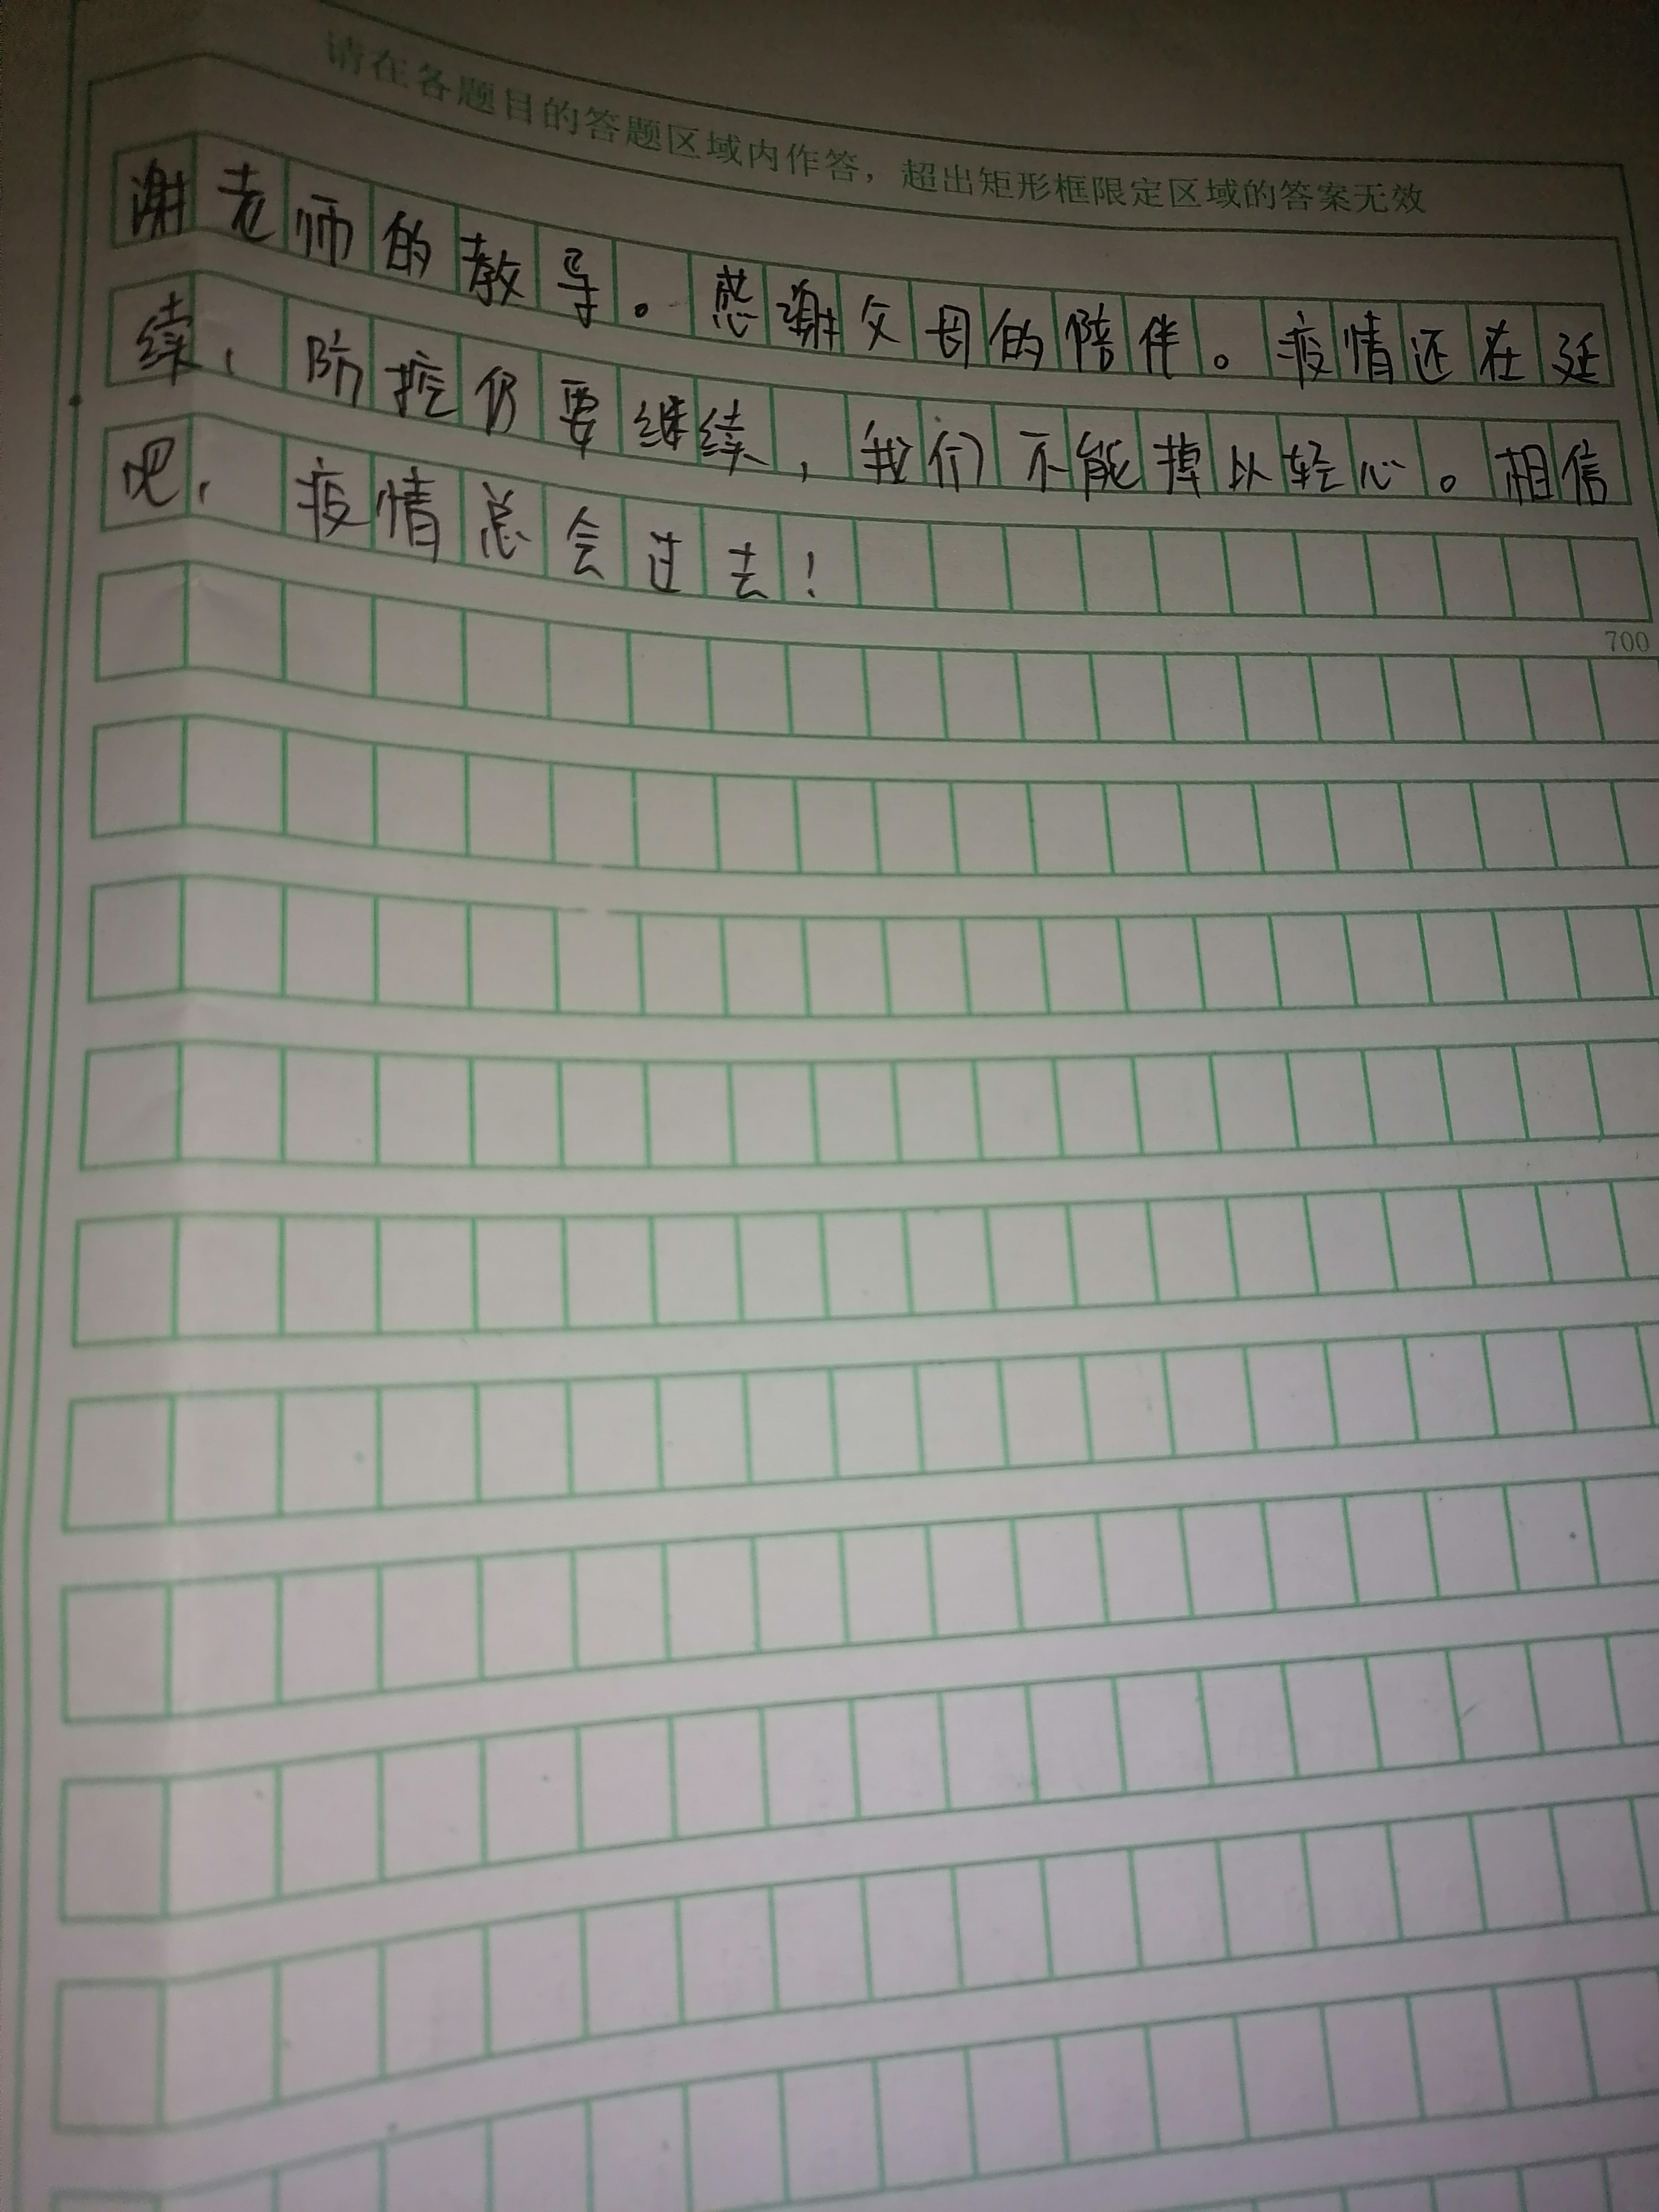 请在各题目的答题区域内作答，超出矩形框限定区域的答案无效
谢老师的教导。感谢父母的陪伴。疫情还在延
续，防控仍要继续，我们不能掉以轻心。相信
吧，疫情总会过去！
700